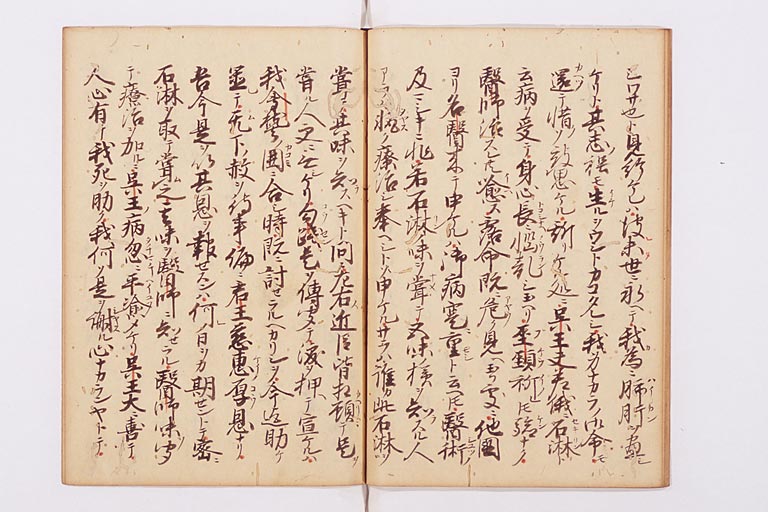 シワサセト見給ケレハ後末世ニ永テ我為ニ肺肝ヲ盡シ
ケリト其志ノ程モ生ルヲウントカコタレシ我カナカラノ命
還テ惜クソ被思ケル斯ケル処ニ呉王夫差俄ニ石淋ト
云病ヲ受テ身心長ニ悩乱シ玉ヘリ巫覡祈レトモ驗ナク
醫師治スレトモ愈ス露命既ニ危ク見ヘ玉フ処ニ他國
ヨリ名醫来テ申ケルハ御病寔ニ重ト云ヘトモ醫術ノ
及ヒマシキニ非ス若石淋ノ味ヲ嘗テ五味ノ様ヲ知スル人
アラハ輒ク療治シ奉ヘシトソ申ケルサラハ誰カ此石淋ヲ
嘗テ其味ヲ知スヘキト問ニ左右近臣皆相顧テ是ヲ
嘗ル人更ニ無リケリ勾践是ヲ傳聞テ涙ヲ押テ宣ケルハ
我会稽ノ囲ニ合シ時既ニ討セラルヘカリシヲ今迄助ケ
置テ天下ノ赦ヲ待事偏ニ君王慈惠ノ厚恩ナリ
吾今是ヲ以其恩ヲ報セスンハ何ノ日ヲカ期セントテ密ニ
石淋ヲ取テ嘗之其味ヲ醫師ニ知セラル醫師味ヲ聞
テ療治ヲ加ルニ呉王病忽ニ平愈メケリ呉王大ニ喜テ
人心有リ我死ヲ助ク我何ソ是ヲ謝ル心ナカランヤトテ